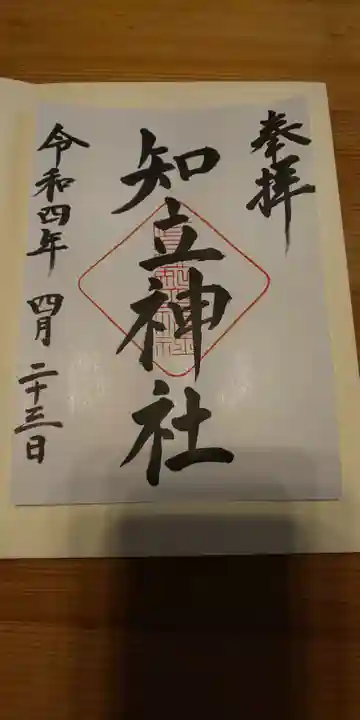 奉拝
知立神社
令和四年 四月 二十三日